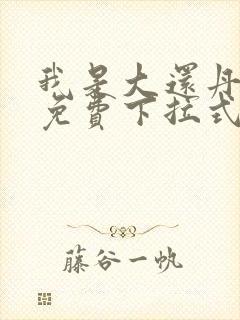 我是大還丹
免費下拉式
藤谷一帆